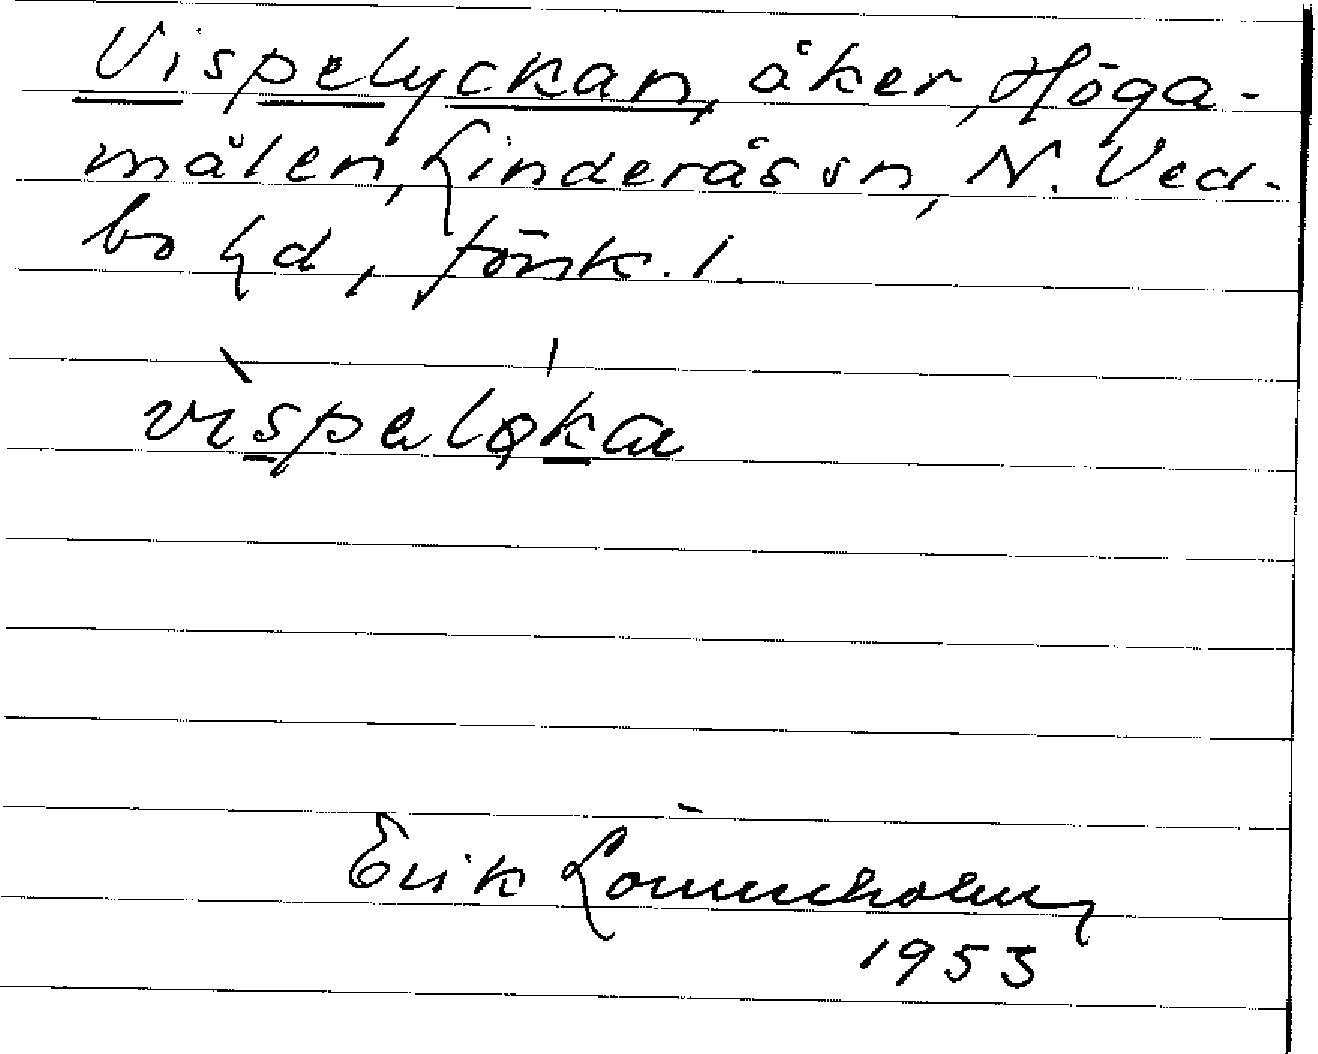 Vispelyckan, åker, Höga-
målen, Linderås sn, N. Ved-
bo hd, Jönk. l.
vispelǫka
Erik Lönnerholm
1953